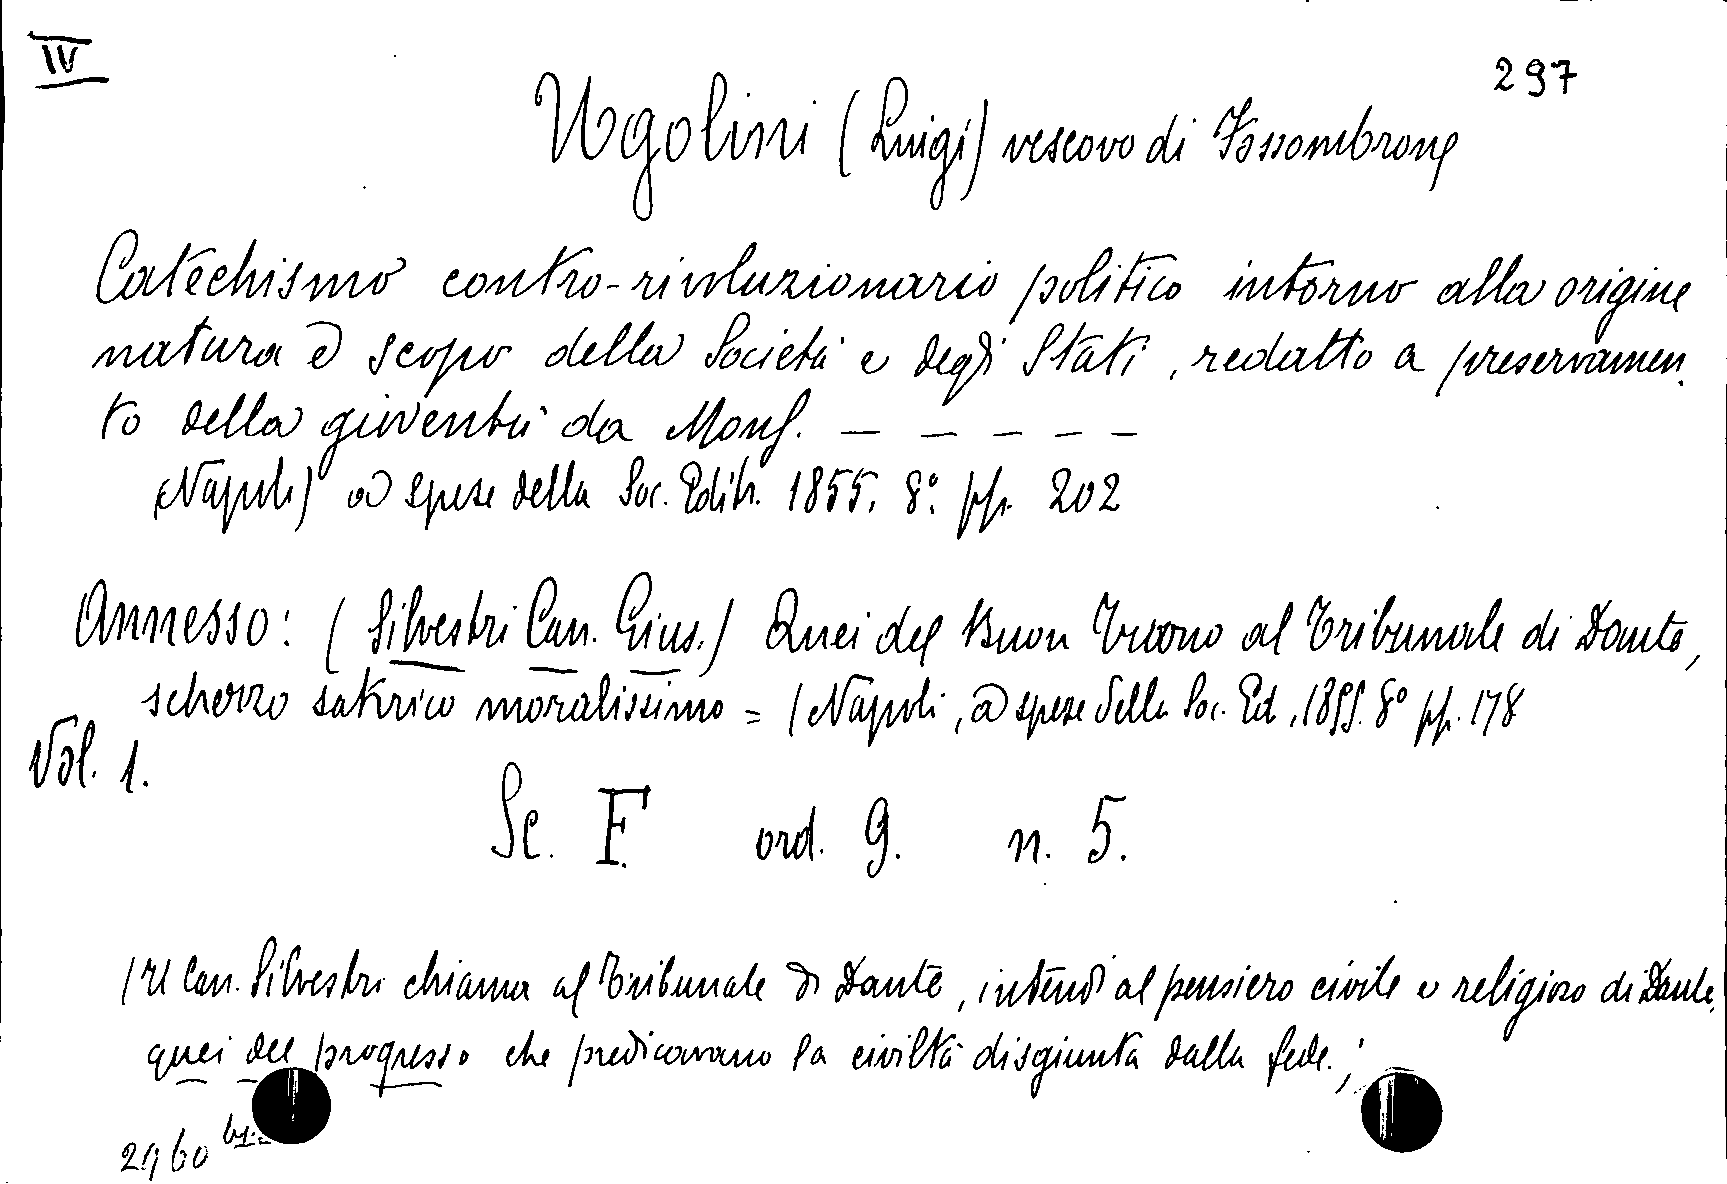 IV
297
Ugolini (Luigi) vescovo di Fossombrone
Catechismo contro-rivoluzionario politico intorno alla origine
natura e scopo della Società e degli Stati, redatto a preservamen
to della gioventù da Mons. — — — — —
(Napoli) a spese della Soc. Editr. 1855. 8° pp. 202
Annesso: (Silvestri Can. Gius.) Quei del Buon Tuono al Tribunale di Dante,
scherzo satirico moralissimo = (Napoli, a spese della Soc. Ed, 1855. 8° pp. 178
Vol. 1.
Sc. F. ord. 9. n. 5.
(Il Can. Silvestri chiama al Tribunale di Dante, intendi al pensiero civile e religioso di Dante,
quei del progresso che predicavano la civiltà disgiunta dalla fede.)
2960